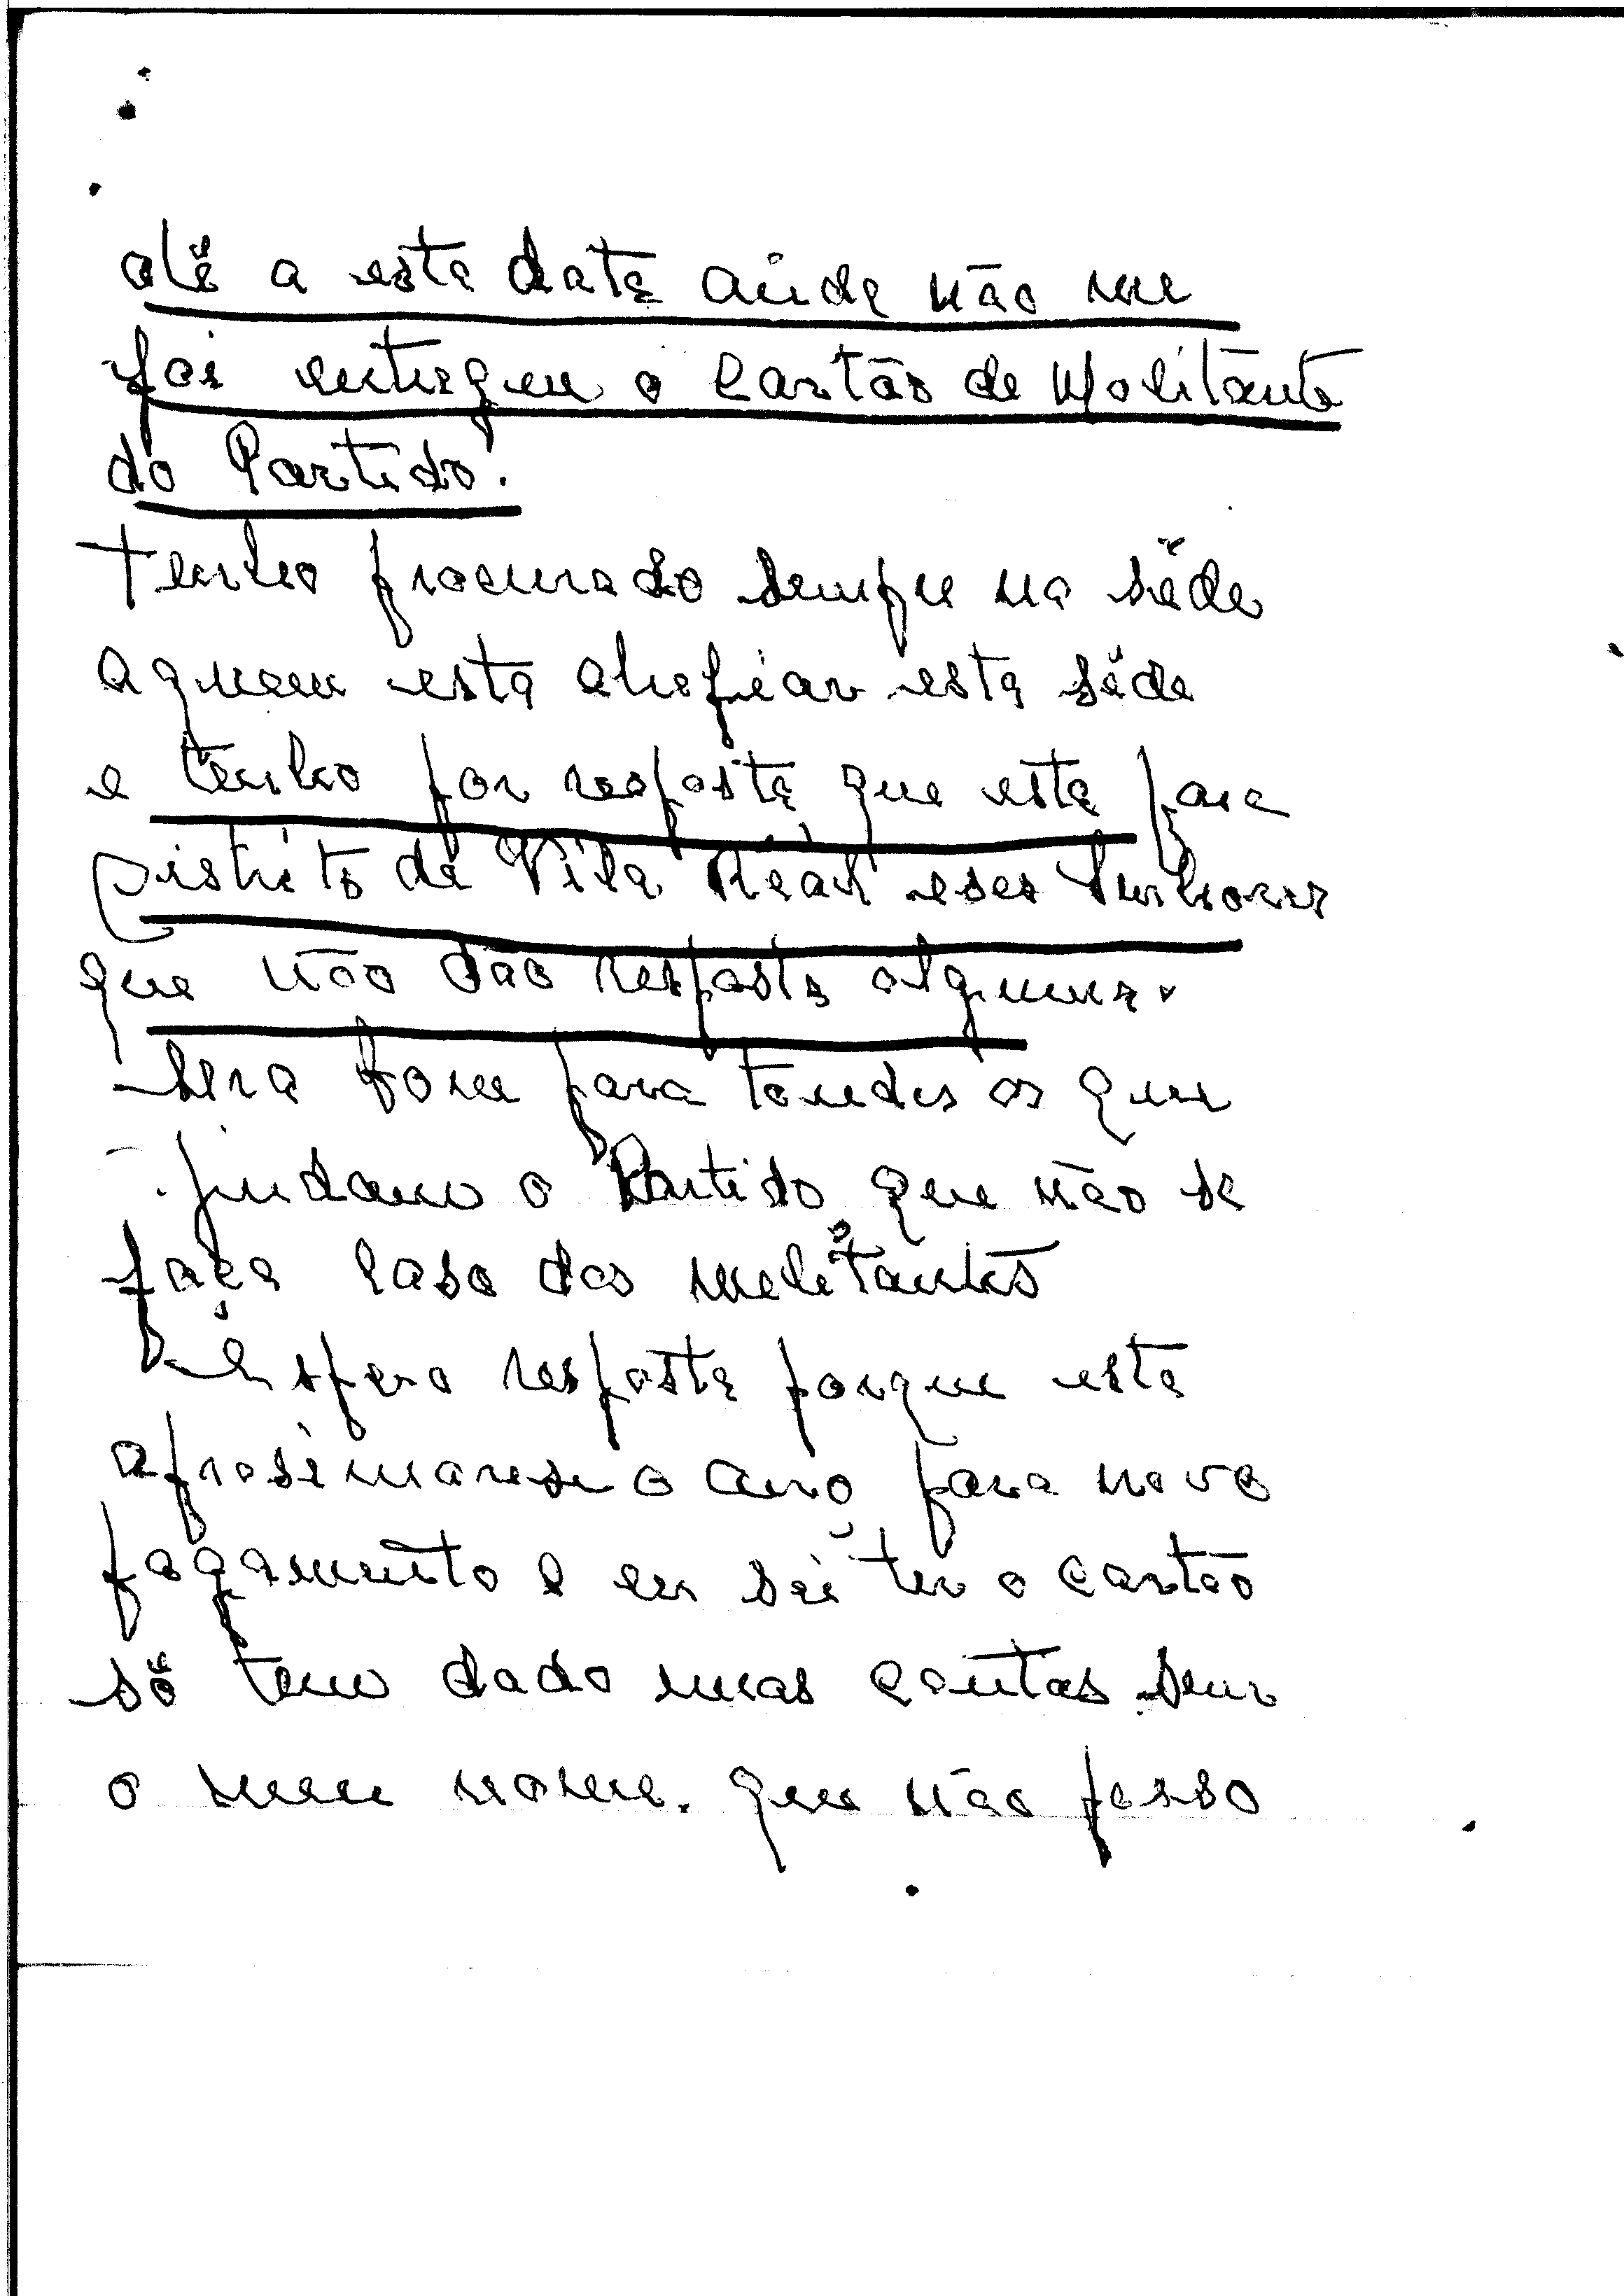 até a esta data ainda não me
foi entregue o Cartão de Molitante
do Partido.
tenho procurado sempre na séde
aquem esta chefiar esta séde
e tenho por resposta que esta para
Distrito de Vila Real eses Senhores
que não dão resposta alguma.
Sera bom para toudos os que
judam o Partido que não se
faça Caso dos melitantes
Espero resposta porque esta
aprosimarese o ano para novo
pagamento e eu sei ter o cartão
só tem dado umas contas sem
o meu nome. que não posso